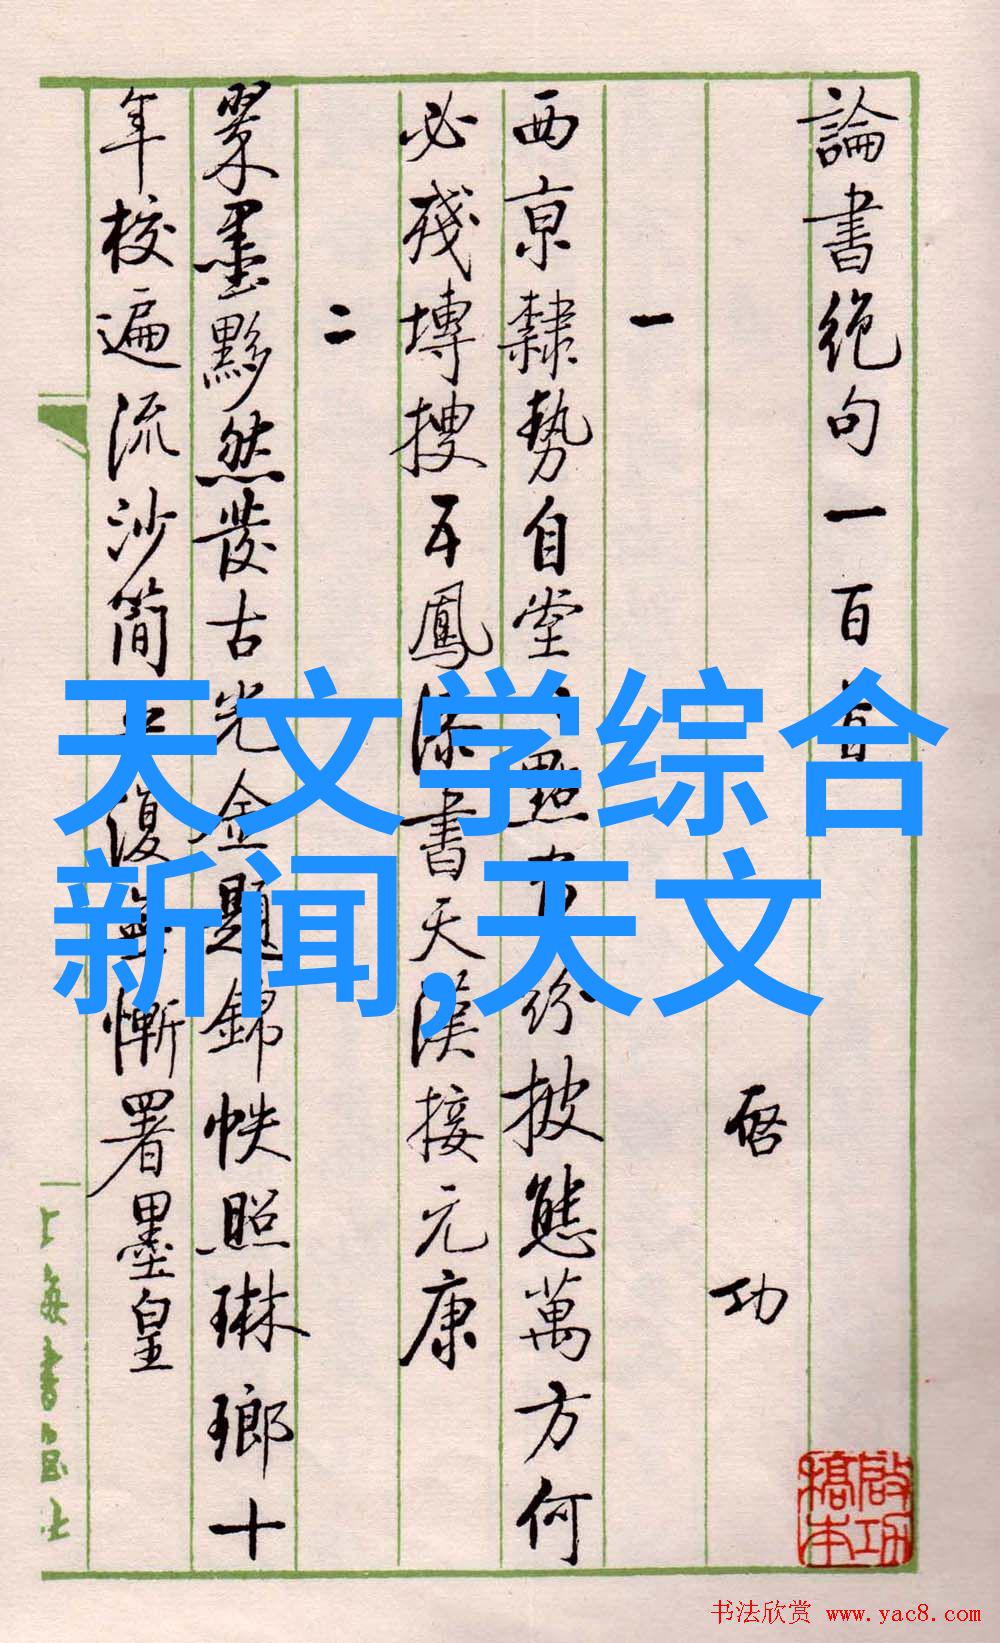 論書絕句一百首
启功
一
西京隸勢自堂々點畫紛披態萬方何
必殘塼搜五鳳漆書天漢接元康
二
翠墨黟然發古光金題錦帙照琳瑯十
年校遍流沙簡平復無慚署墨皇
上海書画社
啟功稿本
天文学综合
新闻,天文
书法欣赏 www.yac8.com